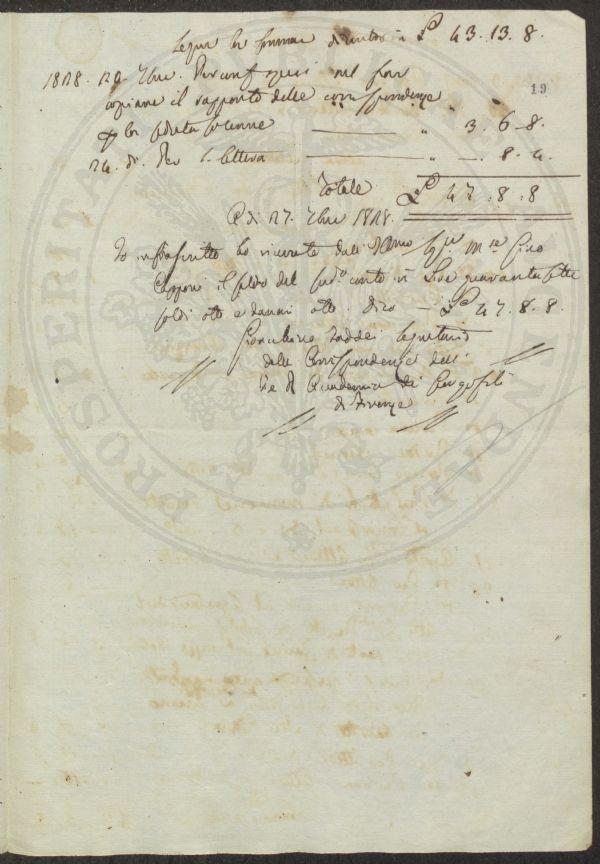 Segue la somma di contro in £ 43. 13. 8.
19
1828. 22. 7bre. Per
copiare il rapporto delle corrispondenze
la seduta solenne " 3. 6. 8.
24. do. Per 1. Lettera " —. 8. 4.
Totale £ 47. 8. 8
A dì 27. 7bre 1828.
Io infrascritto ho ricevuto dall' Illmo Sigre Mse Gino
Capponi il saldo del conto in Lire quarantasette
soldi otto e danari otto. Dico — £ 47. 8. 8.
Taddei Segretario
delle Corrispondenze dell'
I e R Accademia dei Georgofili
di Firenze
PROSPERITATI PUBLICAE AUGENDAE